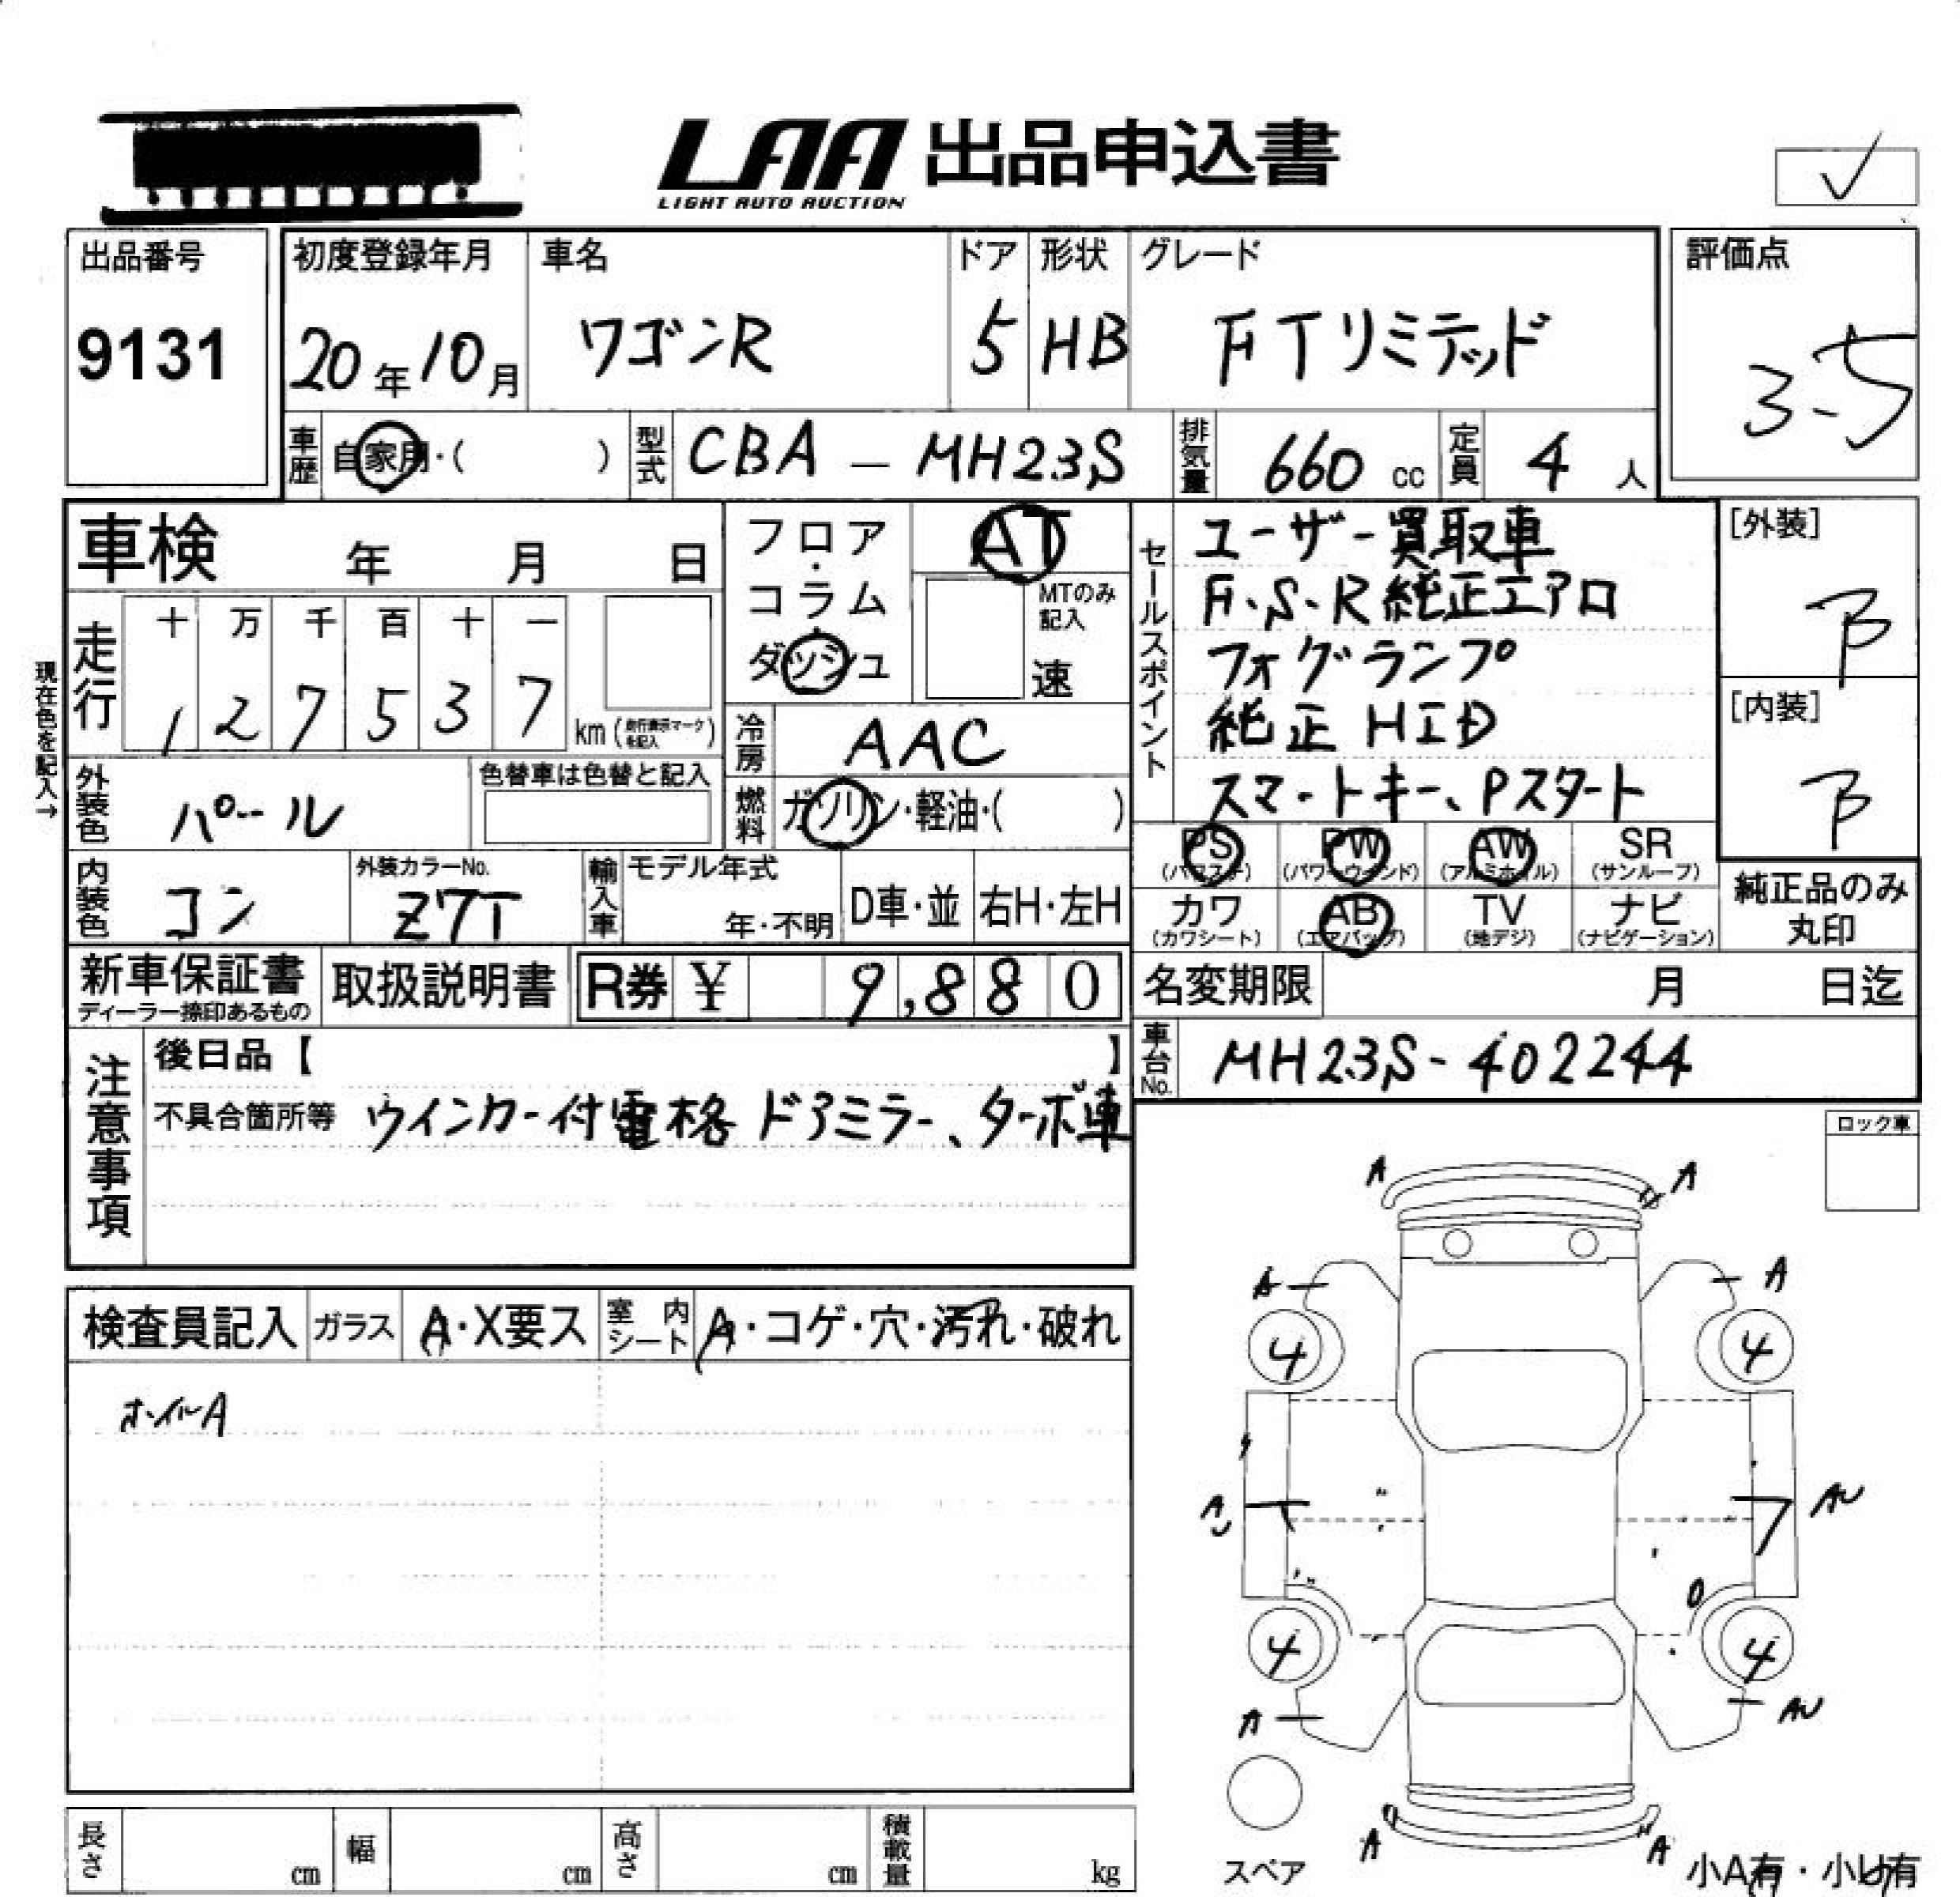 LAA 出品申込書
LIGHT AUTO AUCTION
✓
出品番号
9131
初度登録年月
20年10月
車名
ワゴンR
ドア
5
形状
HB
グレード
FTリミテッド
評価点
3.5
車歴 自家用・( )
型式 CBA - MH23S
排気量 660 cc
定員 4 人
車検 年 月 日
走行
十 万 千 百 十 一
1 2 7 5 3 7
km (走行表示マークを記入)
現在色を記入→
フロア・コラム・ダッシュ
AT
MTのみ記入
速
冷房 AAC
燃料 ガソリン・軽油・( )
外装色 パール
色替車は色替と記入
内装色 コン
外装カラーNo.
Z7T
輸入車
モデル年式
年・不明
D車・並
右H・左H
セールスポイント
ユーザー買取車
F.S.R純正エアロ
フォグランプ
純正HID
スマートキー、Pスタート
[外装]
B
[内装]
B
PS (パワステ)
PW (パワーウインド)
AW (アルミホイル)
SR (サンルーフ)
カワ (カワシート)
AB (エアバッグ)
TV (地デジ)
ナビ (ナビゲーション)
純正品のみ
丸印
新車保証書
ディーラー捺印あるもの
取扱説明書
R券 ¥ 9,880
名変期限 月 日迄
車台No. MH23S-402244
注意事項
後日品【 】
不具合箇所等 ウインカー付電格ドアミラー、ターボ車
ロック車
検査員記入
ガラス A・X要ス
室内シート A・コゲ・穴・汚れ・破れ
ホイルA
A A
A A
4 4
AU AU
4 4
A AU
A A
スペア
小A有・小U有
長さ cm
幅 cm
高さ cm
積載量 kg